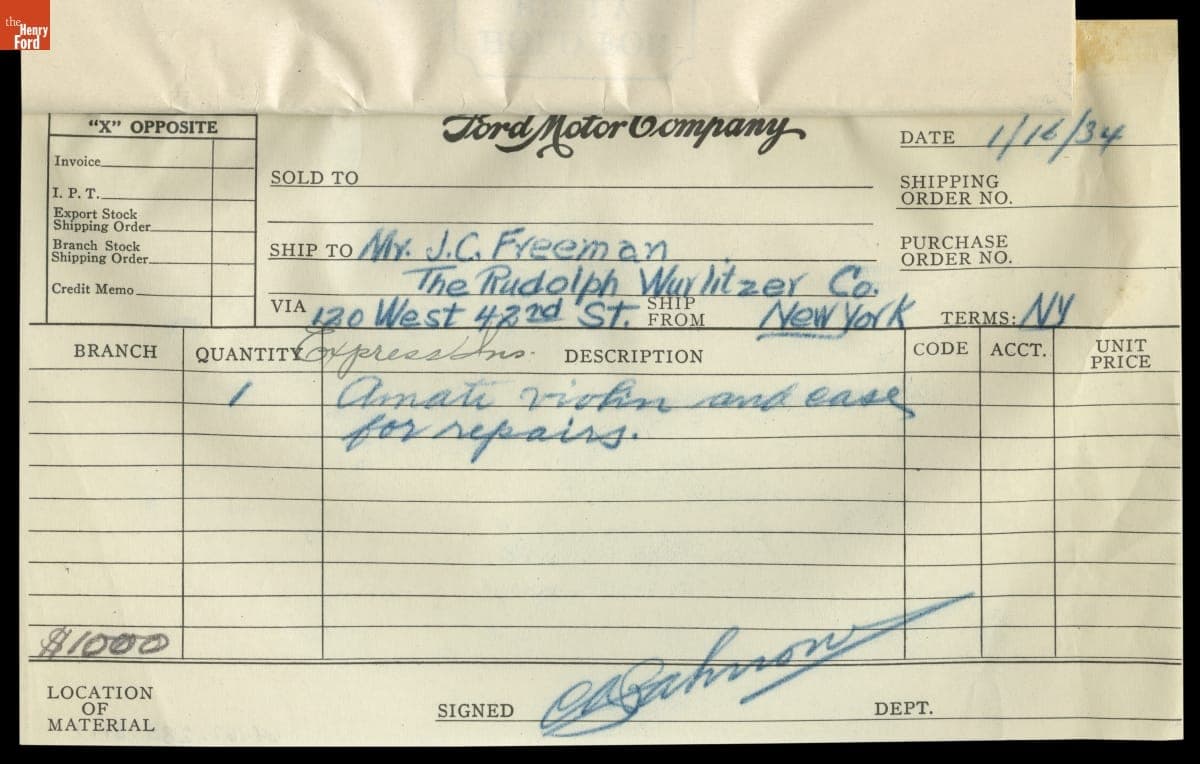 the
Henry
Ford
"X" OPPOSITE
Invoice
I. P. T.
Export Stock
Shipping Order
Branch Stock
Shipping Order
Credit Memo
Ford Motor Company
DATE 1/16/34
SOLD TO
SHIPPING
ORDER NO.
SHIP TO Mr. J.C. Freeman
PURCHASE
ORDER NO.
The Rudolph Wurlitzer Co.
VIA 120 West 42nd St. SHIP FROM New York TERMS: NY
BRANCH QUANTITY Express Ins. DESCRIPTION CODE ACCT. UNIT PRICE
1 Amati violin and case
for repairs.
$1000
LOCATION
OF
MATERIAL
SIGNED
DEPT.